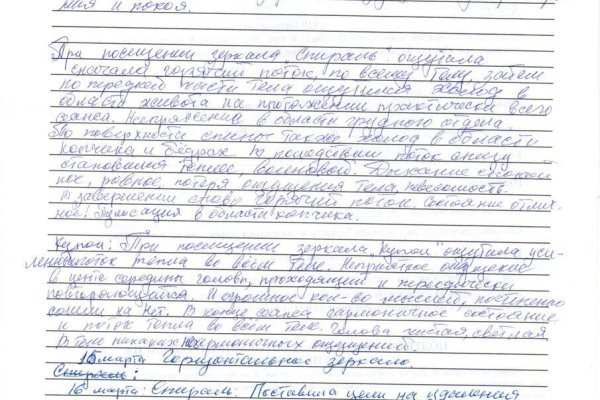 мия и покоя.
При посещении зеркала "Спираль" ощутила
сначала горячий поток, по всему телу, затем
по передней части тела ощущался холод в
области живота на протяжении практически всего
сеанса. Напряжение в области грудного отдела.
По поверхности спины также холод в области
копчика и бёдрах. В последствии поток снизу
становился теплее, волновой. Дыхание спокой
ное, ровное, потеря ощущения тела, невесомость.
В завершении снова горячий поток. Состояние отлич-
ное. Пульсация в области копчика.
Купол: При посещении зеркала "Купол" ощутила уси-
ление поток тепла во всем теле. Неприятное ощущение
в центе середины головы, проходящий и переодически
повторяющийся. И огромное кол-во мыслей, постепенно
сошли на нет. В конце сеанса гармоничное состояние
и поток тепла во всем теле. Голова чистая, светлая
В теле никаких негармоничных ощущений.
15 марта Горизонтальное зеркало.
Спираль:
16 марта: Спираль. Поставила цели на удаления